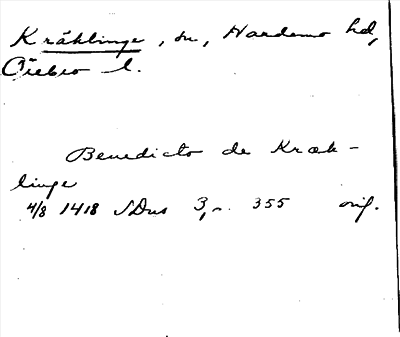 Kräklinge, sn, Hardemo hd,
Örebro l.
Benedicto de Kræk-
linge
4/8 1418 SDns 3, 355 orig.